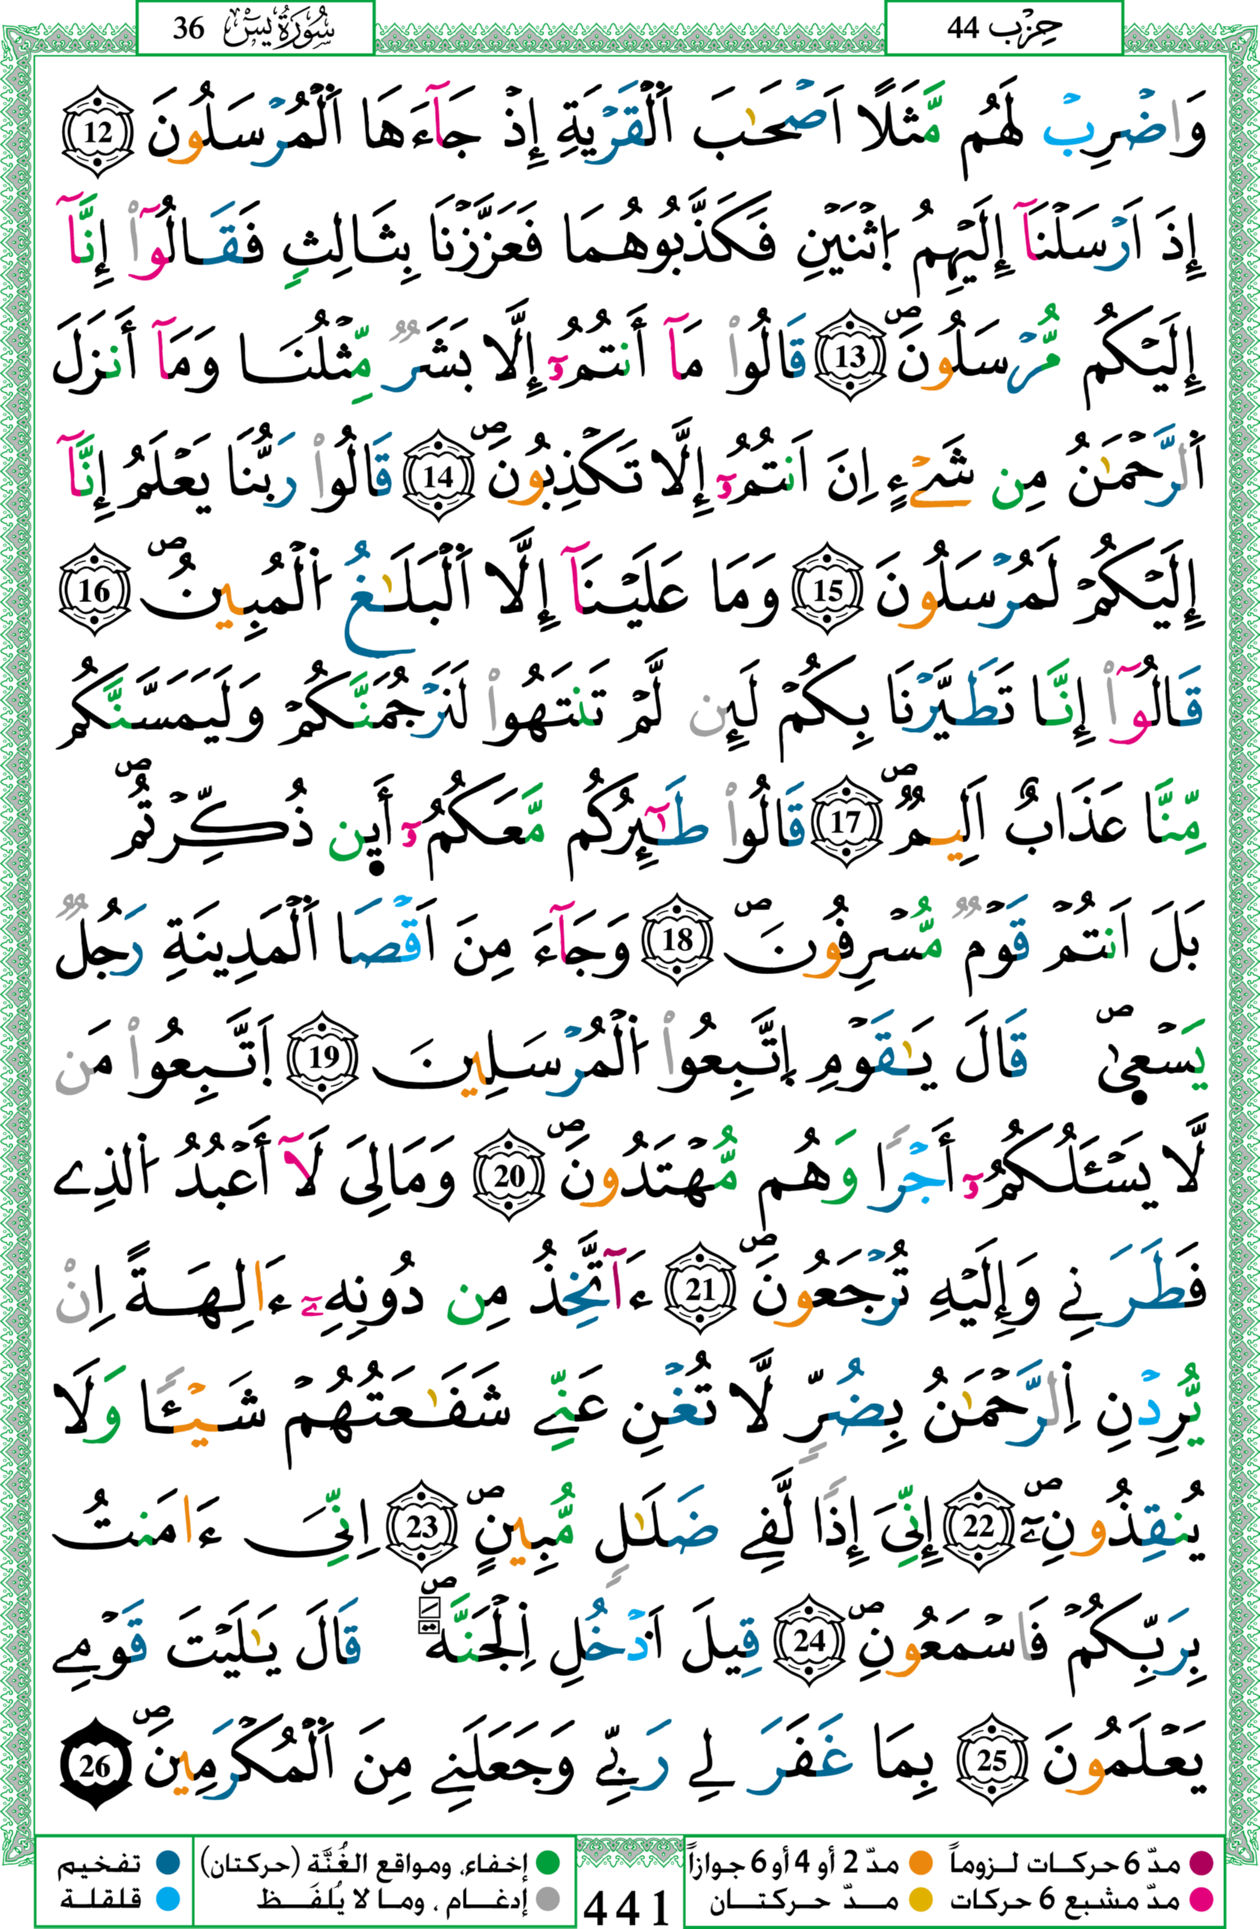 حِزْب 44
سُورَةُ يسٓ 36
وَاضْرِبْ لَهُم مَّثَلًا اَصْحَٰبَ اَ۬لْقَرْيَةِ إِذْ جَآءَهَا اَ۬لْمُرْسَلُونَ 12
إِذَ اَرْسَلْنَآ إِلَيْهِمُ اُ۪ثْنَيْنِ فَكَذَّبُوهُمَا فَعَزَّزْنَا بِثَالِثٍ فَقَالُوٓاْ إِنَّآ
إِلَيْكُم مُّرْسَلُونَۖ 13 قَالُواْ مَآ أَنتُمُۥٓ إِلَّا بَشَرٌ مِّثْلُنَا وَمَآ أَنزَلَ
اَ۬لرَّحْمَٰنُ مِن شَےْءٍ اِنَ اَنتُمُۥٓ إِلَّا تَكْذِبُونَۖ 14 قَالُواْ رَبُّنَا يَعْلَمُ إِنَّآ
إِلَيْكُمْ لَمُرْسَلُونَ 15 وَمَا عَلَيْنَآ إِلَّا اَ۬لْبَلَٰغُ اُ۬لْمُبِينُۖ 16
قَالُوٓاْ إِنَّا تَطَيَّرْنَا بِكُمْ لَئِن لَّمْ تَنتَهُواْ لَنَرْجُمَنَّكُمْ وَلَيَمَسَّنَّكُم
مِّنَّا عَذَابٌ اَلِيمٌۖ 17 قَالُواْ طَٰٓئِرُكُم مَّعَكُمُۥٓ أَي۪ن ذُكِّرْتُمۖ
بَلَ اَنتُمْ قَوْمٌ مُّسْرِفُونَۖ 18 وَجَآءَ مِنَ اَقْصَا اَ۬لْمَدِينَةِ رَجُلٌ
يَسْع۪ىٰۖ قَالَ يَٰقَوْمِ اِ۪تَّبِعُواْ اُ۬لْمُرْسَلِينَ 19 اَ۪تَّبِعُواْ مَن
لَّا يَسْـَٔلُكُمُۥٓ أَجْرًا وَهُم مُّهْتَدُونَۖ 20 وَمَالِيَ لَآ أَعْبُدُ اُ۬لذِے
فَطَرَنِے وَإِلَيْهِ تُرْجَعُونَۖ 21 ءَآتَّخِذُ مِن دُونِهِۦٓ ءَالِهَةً اِنْ
يُّرِدْنِ اِ۬لرَّحْمَٰنُ بِضُرٍّ لَّا تُغْنِ عَنِّے شَفَٰعَتُهُمْ شَيْـًٔا وَلَا
يُنقِذُونِۦٓۖ 22 إِنِّيَ إِذًا لَّفِے ضَلَٰلٍ مُّبِينٍۖ 23 اِنِّيَ ءَامَنتُ
بِرَبِّكُمْ فَاسْمَعُونِۖ 24 قِيلَ اَ۟دْخُلِ اِ۬لْجَنَّةَۖ قَالَ يَٰلَيْتَ قَوْمِے
يَعْلَمُونَ 25 بِمَا غَفَرَ لِے رَبِّے وَجَعَلَنِے مِنَ اَ۬لْمُكْرَمِينَۖ 26
مدّ 6 حركات لـزوماً
مدّ 2 أو 4 أو 6 جوازاً
إخفاء، ومواقع الغُنَّة (حركتان)
تفخيم
مدّ مشبع 6 حركات
مـدّ حـركتــان
إدغـام ، ومـا لا يُلفَـظ
قلقلة
441